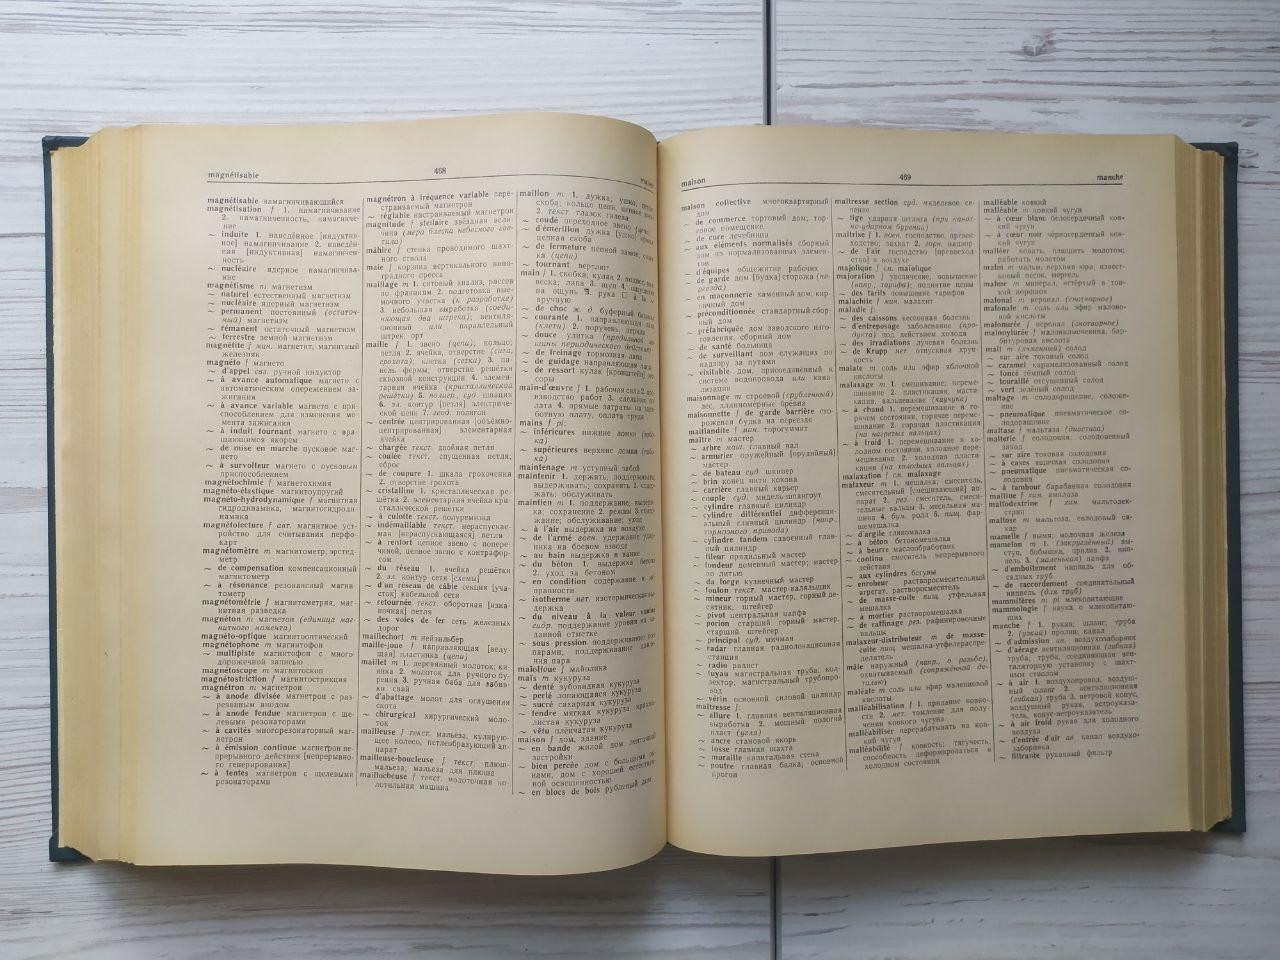 magnétisable
468
magnétisable намагничивающийся
magnétisation f 1. намагничивание
2. намагниченность, намагниче-
ние
~ induite 1. наведённое [индуктив-
ное] намагничивание 2. наведён-
ная [индуктивная] намагничен-
ность
~ nucléaire ядерное намагничива-
ние
magnétisme m магнетизм
~ naturel естественный магнетизм
~ nucléaire ядерный магнетизм
~ permanent постоянный (остаточ-
ный) магнетизм
~ rémanent остаточный магнетизм
~ terrestre земной магнетизм
magnétite f мин. магнетит, магнитный
железняк
magnéto f магнето
~ d'appel свз. ручной индуктор
~ à avance automatique магнето с
автоматическим опережением за-
жигания
~ à avance variable магнето с при-
способлением для изменения мо-
мента зажигания
~ à induit tournant магнето с вра-
щающимся якорем
~ de mise en marche пусковое маг-
нето
~ à survolteur магнето с пусковым
приспособлением
magnétochimie f магнетохимия
magnéto-élastique магнитоупругий
magnéto-hydrodynamique f магнитная
гидродинамика, магнитогидроди-
намика
magnétolecture f авт. магнитное уст-
ройство для считывания перфо-
карт
magnétomètre m магнитометр, эрстед-
метр
~ de compensation компенсационный
магнитометр
~ à résonance резонансный магни-
тометр
magnétométrie f магнитометрия, маг-
нитная разведка
magnéton m магнетон (единица маг-
нитного момента)
magnéto-optique магнитооптический
magnétophone m магнитофон
~ multipiste магнитофон с много-
дорожечной записью
magnétoscope m магнитоскоп
magnétostriction f магнитострикция
magnétron m магнетрон
~ à anode divisée магнетрон с раз-
резанным анодом
~ à anode fendue магнетрон с ще-
левыми резонаторами
~ à cavités многорезонаторный маг-
нетрон
~ à émission continue магнетрон не-
прерывного действия [непрерывно-
го генерирования]
~ à fentes магнетрон с щелевыми
резонаторами
magnétron à fréquence variable пере-
страиваемый магнетрон
~ réglable настраиваемый магнетрон
magnitude f stellaire звёздная вели-
чина (мера блеска небесного све-
тила)
mahire f стенка проводимого шахт-
ного ствола
maie f корзина вертикального вино-
градного пресса
maillage m 1. ситовый анализ, рассев
по фракциям 2. подготовка вые-
мочного участка (к разработке)
3. небольшая выработка (соеди-
няющая два штрека); вентиля-
ционный или параллельный
штрек, орт
maille f 1. звено (цепи); кольцо;
петля 2. ячейка, отверстие (сита,
грохота); клетка (сетки) 3. па-
нель фермы; отверстие решётки
сквозной конструкции 4. элемен-
тарная ячейка (кристаллической
решётки) 5. полигр., суд. шпация
6. эл. контур [петля] электриче-
ской цепи 7. геод. полигон
~ centrée центрированная (объёмно-
центрированная) элементарная
ячейка
~ chargée текст. двойная петля
~ coulée текст. спущенная петля;
сброс
~ de coupure 1. шкала грохочения
2. отверстие грохота
~ cristalline 1. кристаллическая ре-
шётка 2. элементарная ячейка кри-
сталлической решётки
~ à culotte текст. полуремизка
~ indémaillable текст. нераспускае-
мая [нераспускающаяся] петля
~ à renfort цепное звено с попере-
чиной, цепное звено с контрафор-
сом
~ du réseau 1. ячейка решётки
2. эл. контур сети [схемы]
~ d'un réseau de câble секция [уча-
сток] кабельной сети
~ retournée текст. оборотная [изна-
ночная] петля
~ des voies de fer сеть железных
дорог
maillechort m нейзильбер
maille-joue f направляющая [веду-
щая] пластинка (цепи)
maillet m 1. деревянный молоток; ки-
янка 2. молоток для ручного бу-
рения 3. ручная баба для забив-
ки свай
~ d'abattage молот для оглушения
скота
~ chirurgical хирургический моло-
ток
mailleuse f текст. мальеза, кулирую-
щее колесо, петлеобразующий ап-
парат
mailleuse-boucleuse f текст. плюш-
мальеза, мальеза для плюша
maillocheuse f текст. молоточная ко-
лотильная машина
maillon m 1. дужка; ушко, петля,
скоба; кольцо цепи, цепное звено
2. текст. глазок галева
~ coudé переходное звено (цепи)
~ d'émerillon дужка [ушко]
цепная скоба
~ de fermeture цепной замок,
ка (цепи)
~ tournant вертлюг
main f 1. скобка; кулак 2.
веска; лапа 3. щуп 4. ощущение
на ощупь 5. рука □ à la ~
вручную
~ de choc ж. д. буферный
~ courante 1. направляющая
(клети) 2. поручень, перила
~ douce улитка
~ de freinage тормозная лапа
~ de guidage направляющая лапа
~ de ressort кулак [кронштейн] рес-
соры
main-d'œuvre f 1. рабочая сила 2.
изводство работ 3. сдельная
лата 4. прямые затраты на зара-
ботную плату, оплата труда
mains f pl:
~ inférieures нижние ломки
ка)
~ supérieures верхние ломки
ка)
maintenage m уступный забой
maintenir 1. держать, поддерживать,
выдерживать; сохранять 2.
жать; обслуживать
maintien m 1. поддержание, выдерж-
ка; сохранение 2. режим 3. содер-
жание; обслуживание; уход
~ à l'air выдержка на воздухе
~ de l'armé воен. удержание удар-
ника на боевом взводе
~ au bain выдержка в ванне
~ du béton 1. выдержка бетона
2. уход за бетоном
~ en condition содержание в
ности
~ isotherme мет. изотермическая вы-
держка
~ du niveau à la valeur voulue
гидр. поддержание уровня на за-
данной отметке
~ sous pression поддержание под
парами; поддержание давле-
ния пара
maiolique f майолика
maïs m кукуруза
~ denté зубовидная кукуруза
~ perlé лопающаяся кукуруза
~ sucré сахарная кукуруза
~ tendre мягкая кукуруза, крахма-
листая кукуруза
~ vêtu плёнчатая кукуруза
maison f дом, здание
~ en bande жилой дом ленточной
застройки
~ bien percée дом с большими ок-
нами, дом с хорошей естествен-
ной освещённостью
~ en blocs de bois рубленый дом
maison
469
manche
maison collective многоквартирный
дом
~ de commerce торговый дом; тор-
говое помещение
~ de cure лечебница
~ aux éléments normalisés сборный
дом из нормализованных элемен-
тов
~ d'équipes общежитие рабочих
~ de garde дом [будка] сторожа (пе-
реезда)
~ en maçonnerie каменный дом; кир-
пичный дом
~ préconditionnée стандартный сбор-
ный дом
~ préfabriquée дом заводского изго-
товления, сборный дом
~ de santé больница
~ de surveillant дом служащих по
надзору за путями
~ visitable дом, присоединённый к
системе водопровода или кана-
лизации
maisonnage m строевой (срубленный)
лес, длинномерные брёвна
maisonnette f de garde barrière сто-
рожевая будка на переезде
maitlandite f мин. торогуммит
maître m мастер
~ arbre маш. главный вал
~ armurier оружейный [орудийный]
мастер
~ de bateau суд. шкипер
~ brin конец нити кокона
~ carrière главный карьер
~ couple суд. мидель-шпангоут
~ cylindre главный цилиндр
~ cylindre différentiel дифференци-
альный главный цилиндр (напр.
тормозного привода)
~ cylindre tandem сдвоенный глав-
ный цилиндр
~ fileur прядильный мастер
~ fondeur доменный мастер; мастер
по литью
~ da forge кузнечный мастер
~ foulon текст. мастер-валяльщик
~ mineur горный мастер, горный де-
сятник, штейгер
~ pivot центральная цапфа
~ porion старший горный мастер,
старший штейгер
~ principal суд. мичман
~ radar главная радиолокационная
станция
~ radio радист
~ tuyau магистральная труба, кол-
лектор; магистральный трубопро-
вод
~ vérin основной силовой цилиндр
maîtresse f:
~ allure 1. главная вентиляционная
выработка 2. мощный пологий
пласт (угля)
~ ancre становой якорь
~ fosse главная шахта
~ muraille капитальная стена
~ poutre главная балка; основной
прогон
maîtresse section суд. миделевое се-
чение
~ tige ударная штанга (при канат-
но-ударном бурении)
maîtrise f 1. воен. господство, превос-
ходство; захват 2. горн. надзор
~ de l'air господство [превосход-
ство] в воздухе
majolique f см. maïolique
majoration f увеличение, повышение
(напр., тарифа); поднятие цены
~ des tarifs повышение тарифов
malachite f мин. малахит
maladie f:
~ des caissons кессонная болезнь
~ d'entreposage заболевание (про-
дукта) под действием холода
~ des irradiations лучевая болезнь
~ de Krupp мет. отпускная хруп-
кость
malate m соль или эфир яблочной
кислоты
malaxage m 1. смешивание; переме-
шивание 2. пластикация, масти-
кация, вальцевание (каучука)
~ à chaud 1. перемешивание в го-
рячем состоянии, горячее переме-
шивание 2. горячая пластикация
(на нагретых вальцах)
~ à froid 1. перемешивание в хо-
лодном состоянии, холодное пере-
мешивание 2. холодная пласти-
кация (на холодных вальцах)
malaxation f см. malaxage
malaxeur m 1. мешалка, смеситель,
смесительный [смешивающий] ап-
парат 2. рез. смеситель, смеси-
тельные вальцы 3. месильная ма-
шина 4. бум. ролл 5. пищ. фар-
шемешалка
~ d'argile глиномялка
~ à béton бетономешалка
~ à beurre маслообработник
~ continu смеситель непрерывного
действия
~ aux cylindres бегуны
~ enrobeur растворосмесительный
агрегат, растворосмеситель
~ de masse-cuite пищ. утфельная
мешалка
~ à mortier растворомешалка
~ de raffinage рез. рафинировочные
вальцы
malaxeur-distributeur m de masse-
cuite пищ. мешалка-утфелераспре-
делитель
mâle наружный (напр., о резьбе),
охватываемый (сопряжённой де-
талью)
maléate m соль или эфир малеиновой
кислоты
malléabilisation f 1. придание ковко-
сти 2. мет. томление для полу-
чения ковкого чугуна
malléabiliser перерабатывать на ков-
кий чугун
malléabilité f ковкость; тягучесть;
способность деформироваться в
холодном состоянии
malléable ковкий
malléable m ковкий чугун
~ à cœur blanc белосердечный ков-
кий чугун
~ à cœur noir чёрносердечный ков-
кий чугун
malléer ковать, плющить молотом;
работать молотом
malm m мальм, верхняя юра; извест-
ковый песок, мергель
malme m минерал, истёртый в тон-
кий порошок
malonal m веронал (снотворное)
malonate m соль или эфир малоно-
вой кислоты
malonurée f веронал (снотворное)
malonylurée f малонилмочевина, бар-
битуровая кислота
malt m (ячменный) солод
~ sur aire токовый солод
~ caramel карамелизованный солод
~ foncé тёмный солод
~ touraillé отсушенный солод
~ vert зелёный солод
maltage m солодоращение, соложе-
ние
~ pneumatique пневматическое со-
лодоращение
maltase f мальтаза (диастаза)
malterie f солодовня, солодовенный
завод
~ sur aire токовая солодовня
~ à cases ящичная солодовня
~ pneumatique пневматическая со-
лодовня
~ à tambour барабанная солодовня
maltine f хим. амилаза
maltodextrine f хим. мальтодек-
стрин
maltose m мальтоза, солодовый са-
хар
mamelle f вымя, молочная железа
mamelon m 1. (закруглённый) вы-
ступ, бобышка, прилив 2. нип-
пель 3. (шиповая) цапфа
~ d'emboîtement ниппель для об-
садных труб
~ de raccordement соединительный
ниппель (для труб)
mammifères m pl млекопитающие
mammologie f наука о млекопитаю-
щих
manche f 1. рукав; шланг; труба
2. (узкий) пролив; канал
~ d'admission ав. воздухозаборник
~ d'aérage вентиляционная (гибкая)
труба; труба, соединяющая вен-
тиляторную установку с шахт-
ным стволом
~ à air 1. воздухопровод, воздуш-
ный шланг 2. вентиляционная
(гибкая) труба 3. ветровой конус,
воздушный рукав, ветроуказа-
тель, конус-ветроуказатель
~ à air froid рукав для холодного
воздуха
~ d'entrée d'air ав. канал воздухо-
заборника
~ filtrante рукавный фильтр